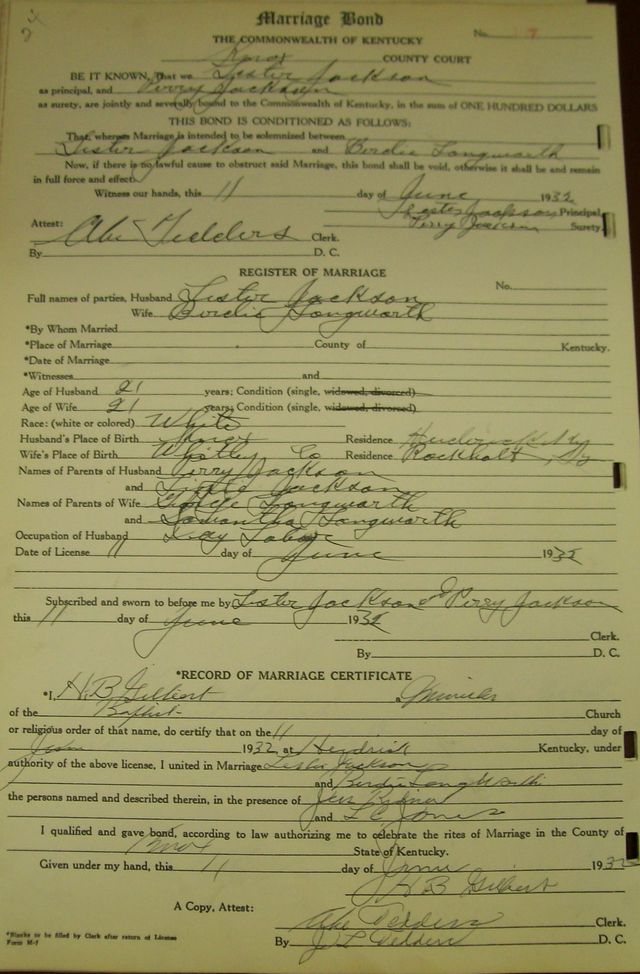 Marriage Bond
No.
THE COMMONWEALTH OF KENTUCKY
Knox COUNTY COURT
BE IT KNOWN, That we Lester Jackson
as principal, and Perry Jackson
as surety, are jointly and severally bound to the Commonwealth of Kentucky, in the sum of ONE HUNDRED DOLLARS
THIS BOND IS CONDITIONED AS FOLLOWS:
That, whereas Marriage is intended to be solemnized between
Lister Jackson and Berdie Longworth
Now, if there is no lawful cause to obstruct said Marriage, this bond shall be void, otherwise it shall be and remain
in full force and effect.
Witness our hands, this 11 day of June 1932
Lester Jackson Principal
Perry Jackson Surety.
Attest:
Abe Tedders Clerk.
By D. C.
REGISTER OF MARRIAGE
No.
Full names of parties, Husband Lister Jackson
Wife Berdie Longworth
*By Whom Married
*Place of Marriage County of Kentucky.
*Date of Marriage
*Witnesses and
Age of Husband 21 years; Condition (single, widowed, divorced)
Age of Wife 21 years; Condition (single, widowed, divorced)
Race: (white or colored) White
Husband's Place of Birth Knox Residence
Wife's Place of Birth Whitley Co Residence Rockholt, Ky
Names of Parents of Husband Perry Jackson
and Jackson
Names of Parents of Wife Longworth
and Samantha Longworth
Occupation of Husband Day Labor
Date of License 11 day of June 1932
Subscribed and sworn to before me by Lister Jackson & Perry Jackson
this 11 day of June 1932
Clerk.
By D. C.
*RECORD OF MARRIAGE CERTIFICATE
*I, H. B Gilbert a Minister
of the Baptist Church
or religious order of that name, do certify that on the 11 day of
June 1932, at Hendrick Kentucky, under
authority of the above license, I united in Marriage Lester Jackson
and Berdie Longworth
the persons named and described therein, in the presence of Jess
and L C Jones
I qualified and gave bond, according to law authorizing me to celebrate the rites of Marriage in the County of
Knox State of Kentucky.
Given under my hand, this 11 day of June 1932
H B Gilbert
A Copy, Attest:
Abe Tedders Clerk.
By J L Tedders D. C.
*Blanks to be filled by Clerk after return of License
Form M-1